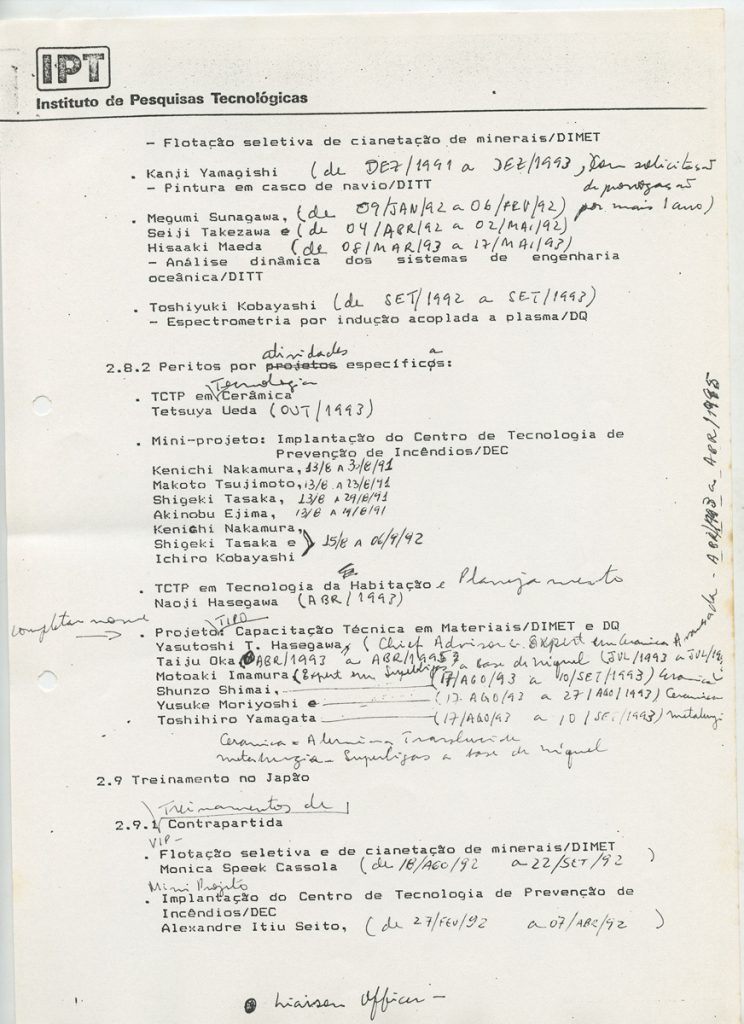 IPT
Instituto de Pesquisas Tecnológicas
- Flotação seletiva de cianetação de minerais/DIMET
. Kanji Yamagishi (de DEZ/1991 a DEZ/1993, com solicitação
- Pintura em casco de navio/DITT de prorrogação
por mais 1 ano)
. Megumi Sunagawa, (de 09/JAN/92 a 06/FEV/92)
Seiji Takezawa e (de 04/ABR/92 a 02/MAI/92)
Hisaaki Maeda (de 08/MAR/93 a 17/MAI/93)
- Análise dinâmica dos sistemas de engenharia
oceânica/DITT
. Toshiyuki Kobayashi (de SET/1992 a SET/1993)
- Espectrometria por indução acoplada a plasma/DQ
atividades a
2.8.2 Peritos por projetos específicos:
Tecnologia
. TCTP em Cerâmica
Tetsuya Ueda (OUT/1993)
. Mini-projeto: Implantação do Centro de Tecnologia de
Prevenção de Incêndios/DEC
Kenichi Nakamura, 13/8 a 31/8/91
Makoto Tsujimoto, 13/8 a 23/8/91
Shigeki Tasaka, 13/8 a 29/8/91
Akinobu Ejima, 13/8 a 19/8/91
Kenichi Nakamura,
Shigeki Tasaka e 15/8 a 06/9/92
Ichiro Kobayashi
. TCTP em Tecnologia da Habitação e Planejamento
Naoji Hasegawa (ABR/1993)
completar nome
TIPO
. Projeto: Capacitação Técnica em Materiais/DIMET e DQ
Yasutoshi T. Hasegawa, (Chief Advisor & Expert em Cerâmica Avançada - ABR/1993 a ABR/1995
Taiju Oka ABR/1993 a ABR/1995
Motoaki Imamura (Expert em Superligas a base de níquel (JUL/1993 a JUL/
Shunzo Shimai, (17/AGO/93 a 10/SET/1993) Cerâmica
Yusuke Moriyoshi e (17 AGO/93 a 27/AGO/1993) Cerâmica
Toshihiro Yamagata (17/AGO/93 a 10/SET/1993)
Cerâmica = Alumina Translúcida
metalurgia - Superligas a base de níquel
2.9 Treinamento no Japão
Treinamentos de
2.9.1 Contrapartida
VIP -
. Flotação seletiva e de cianetação de minerais/DIMET
Monica Speek Cassola (de 18/AGO/92 a 22/SET/92)
Mini Projeto
. Implantação do Centro de Tecnologia de Prevenção de
Incêndios/DEC
Alexandre Itiu Seito, (de 27/FEV/92 a 07/ABR/92)
Liaison Officer -